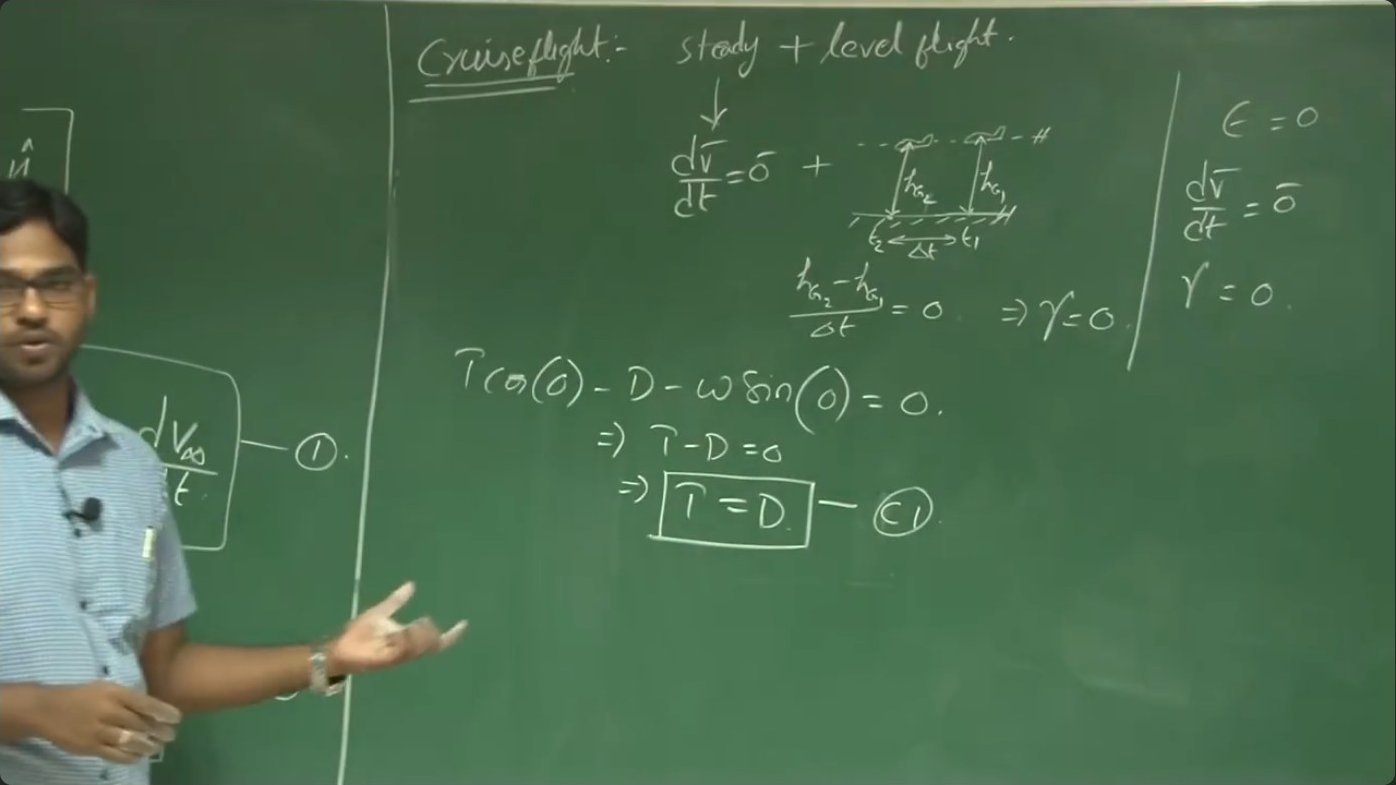 n̂
dV∞/dt. — ①.
Cruise flight:- steady + level flight.
↓
dv̄/dt = ō +
h_G₂ h_G₁
t₂ Δt t₁
(h_G₂ - h_G₁)/Δt = 0. ⇒ γ = 0.
ϵ = 0
dv̄/dt = ō
γ = 0.
T cos(0) - D - W Sin(0) = 0.
⇒ T - D = 0
⇒ T = D. — C1.